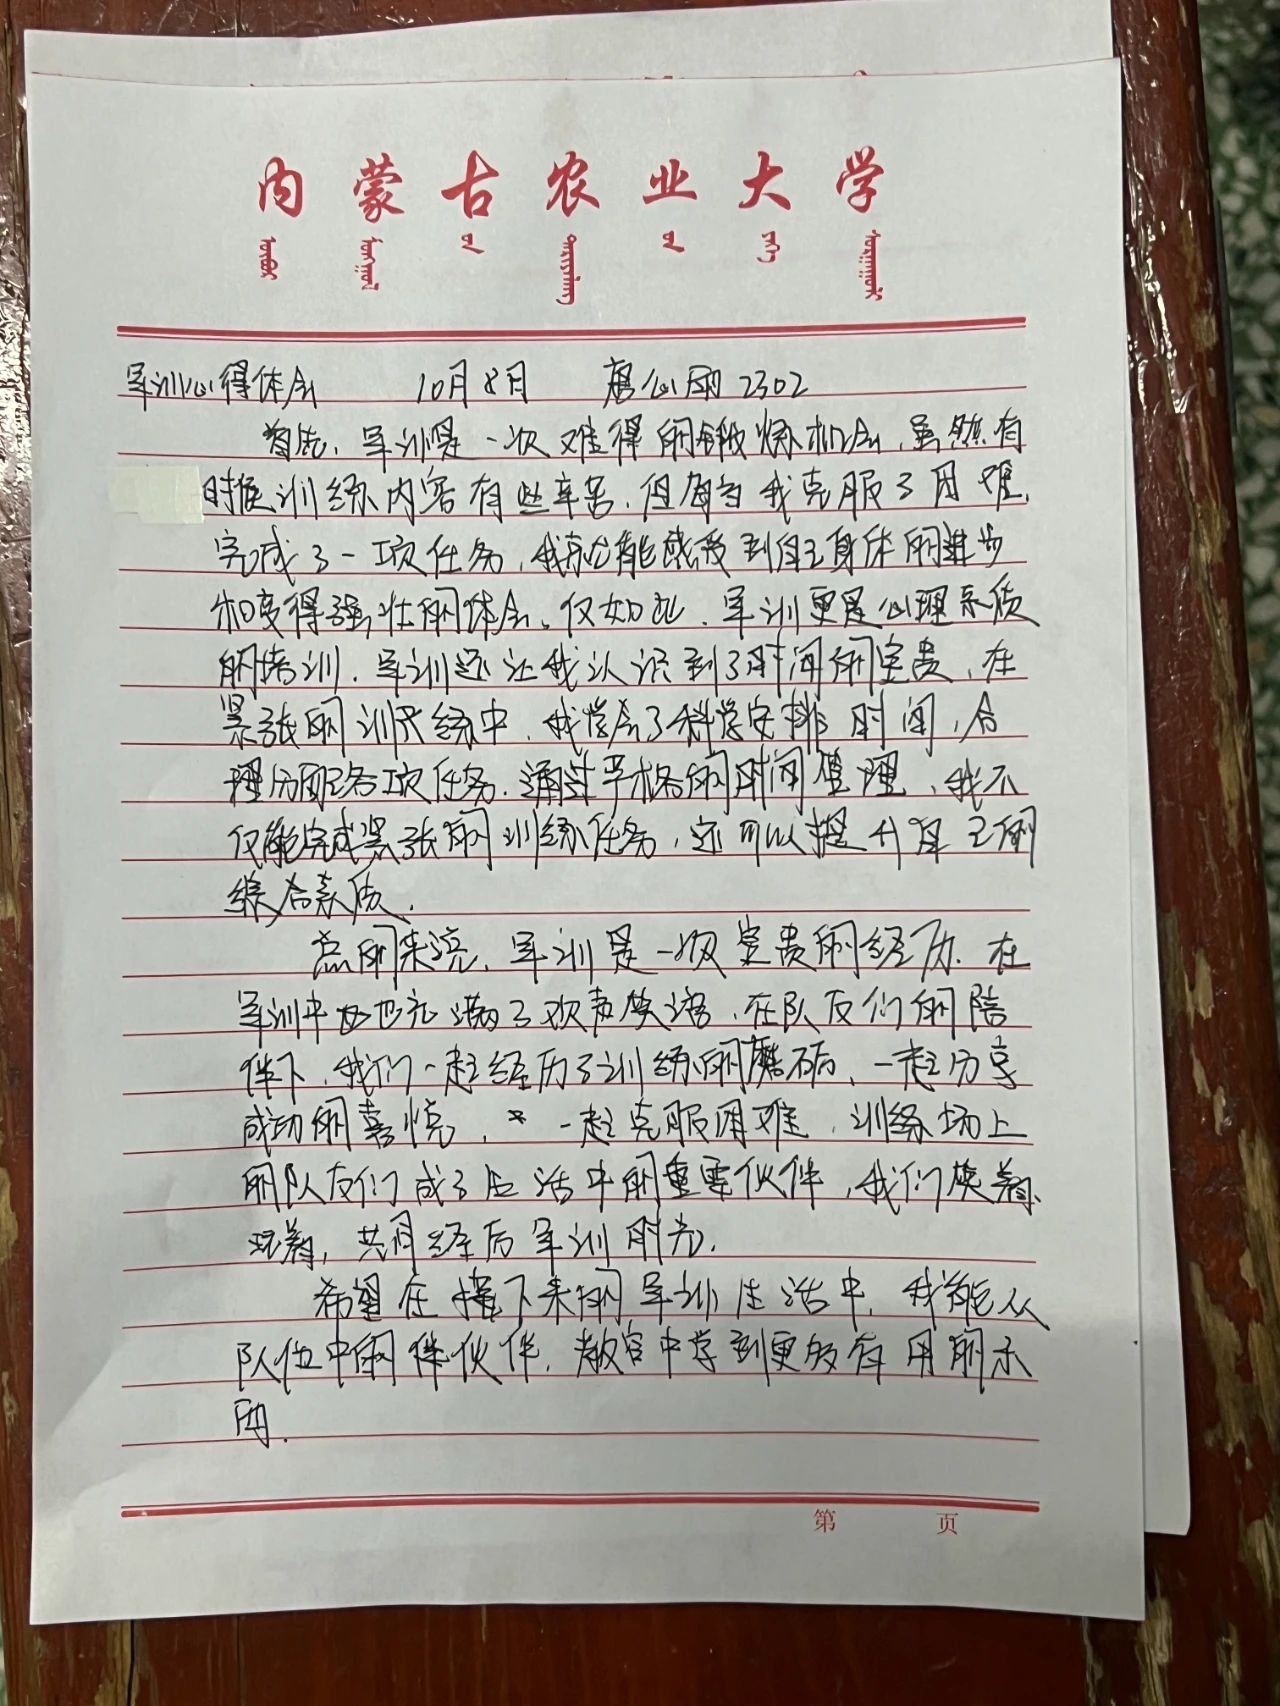 内蒙古农业大学
军训心得体会 10月8日 唐心雨 2302
首先,军训是一次难得的锻炼机会,虽然有
时候训练内容有些辛苦,但每当我克服了困难,
完成了一项任务,我就能感受到自己身体的进步
和变得强壮的体会。仅如此,军训更是心理素质
的培训,军训还让我认识到了时间的宝贵,在
紧张的训练中,我学会了科学安排时间,合
理分配各项任务.通过严格的时间管理,我不
仅能完成紧张的训练任务,还可以提升自己的
综合素质.
总的来说,军训是一段宝贵的经历.在
军训中也充满了欢声笑语,在队友们的陪
伴下,我们一起经历了训练的磨砺,一起分享
成功的喜悦,一起克服困难,训练场上
的队友们成了生活中的重要伙伴,我们笑着、
玩着,共同经历军训时光.
希望在接下来的军训生活中,我能从
队伍中的伙伴,教官中学到更多有用的东
西.
第 页